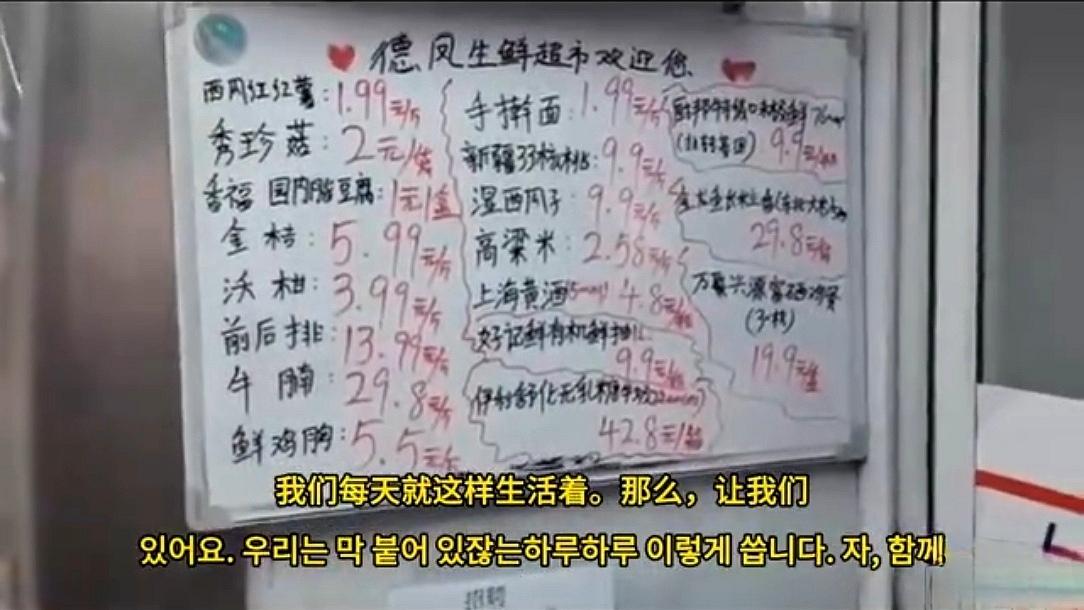 德凤生鲜超市欢迎您
西瓜红红薯:1.99元/斤
秀珍菇:2元/袋
香福 国内脂豆腐:1元/盒
金桔:5.99元/斤
沃柑:3.99元/斤
前后排:13.99元/斤
牛腩:29.8元/斤
鲜鸡胸:5.5元/斤
手擀面:1.99元/斤
新疆33核桃:9.9元/斤
湿西瓜子:9.9元/斤
高粱米:2.58元/斤
上海黄酒(500ml)4.8元/瓶
好记鲜有机鲜抽
9.9元/瓶
伊利舒化无乳糖牛奶
42.8元/箱
9.9元/
29.8元/袋
(3 枚)
19.9元/盒
我们每天就这样生活着。那么，让我们
있어요. 우리는 막 붙어 있잖는하루하루 이렇게 씁니다. 자, 함께
招聘